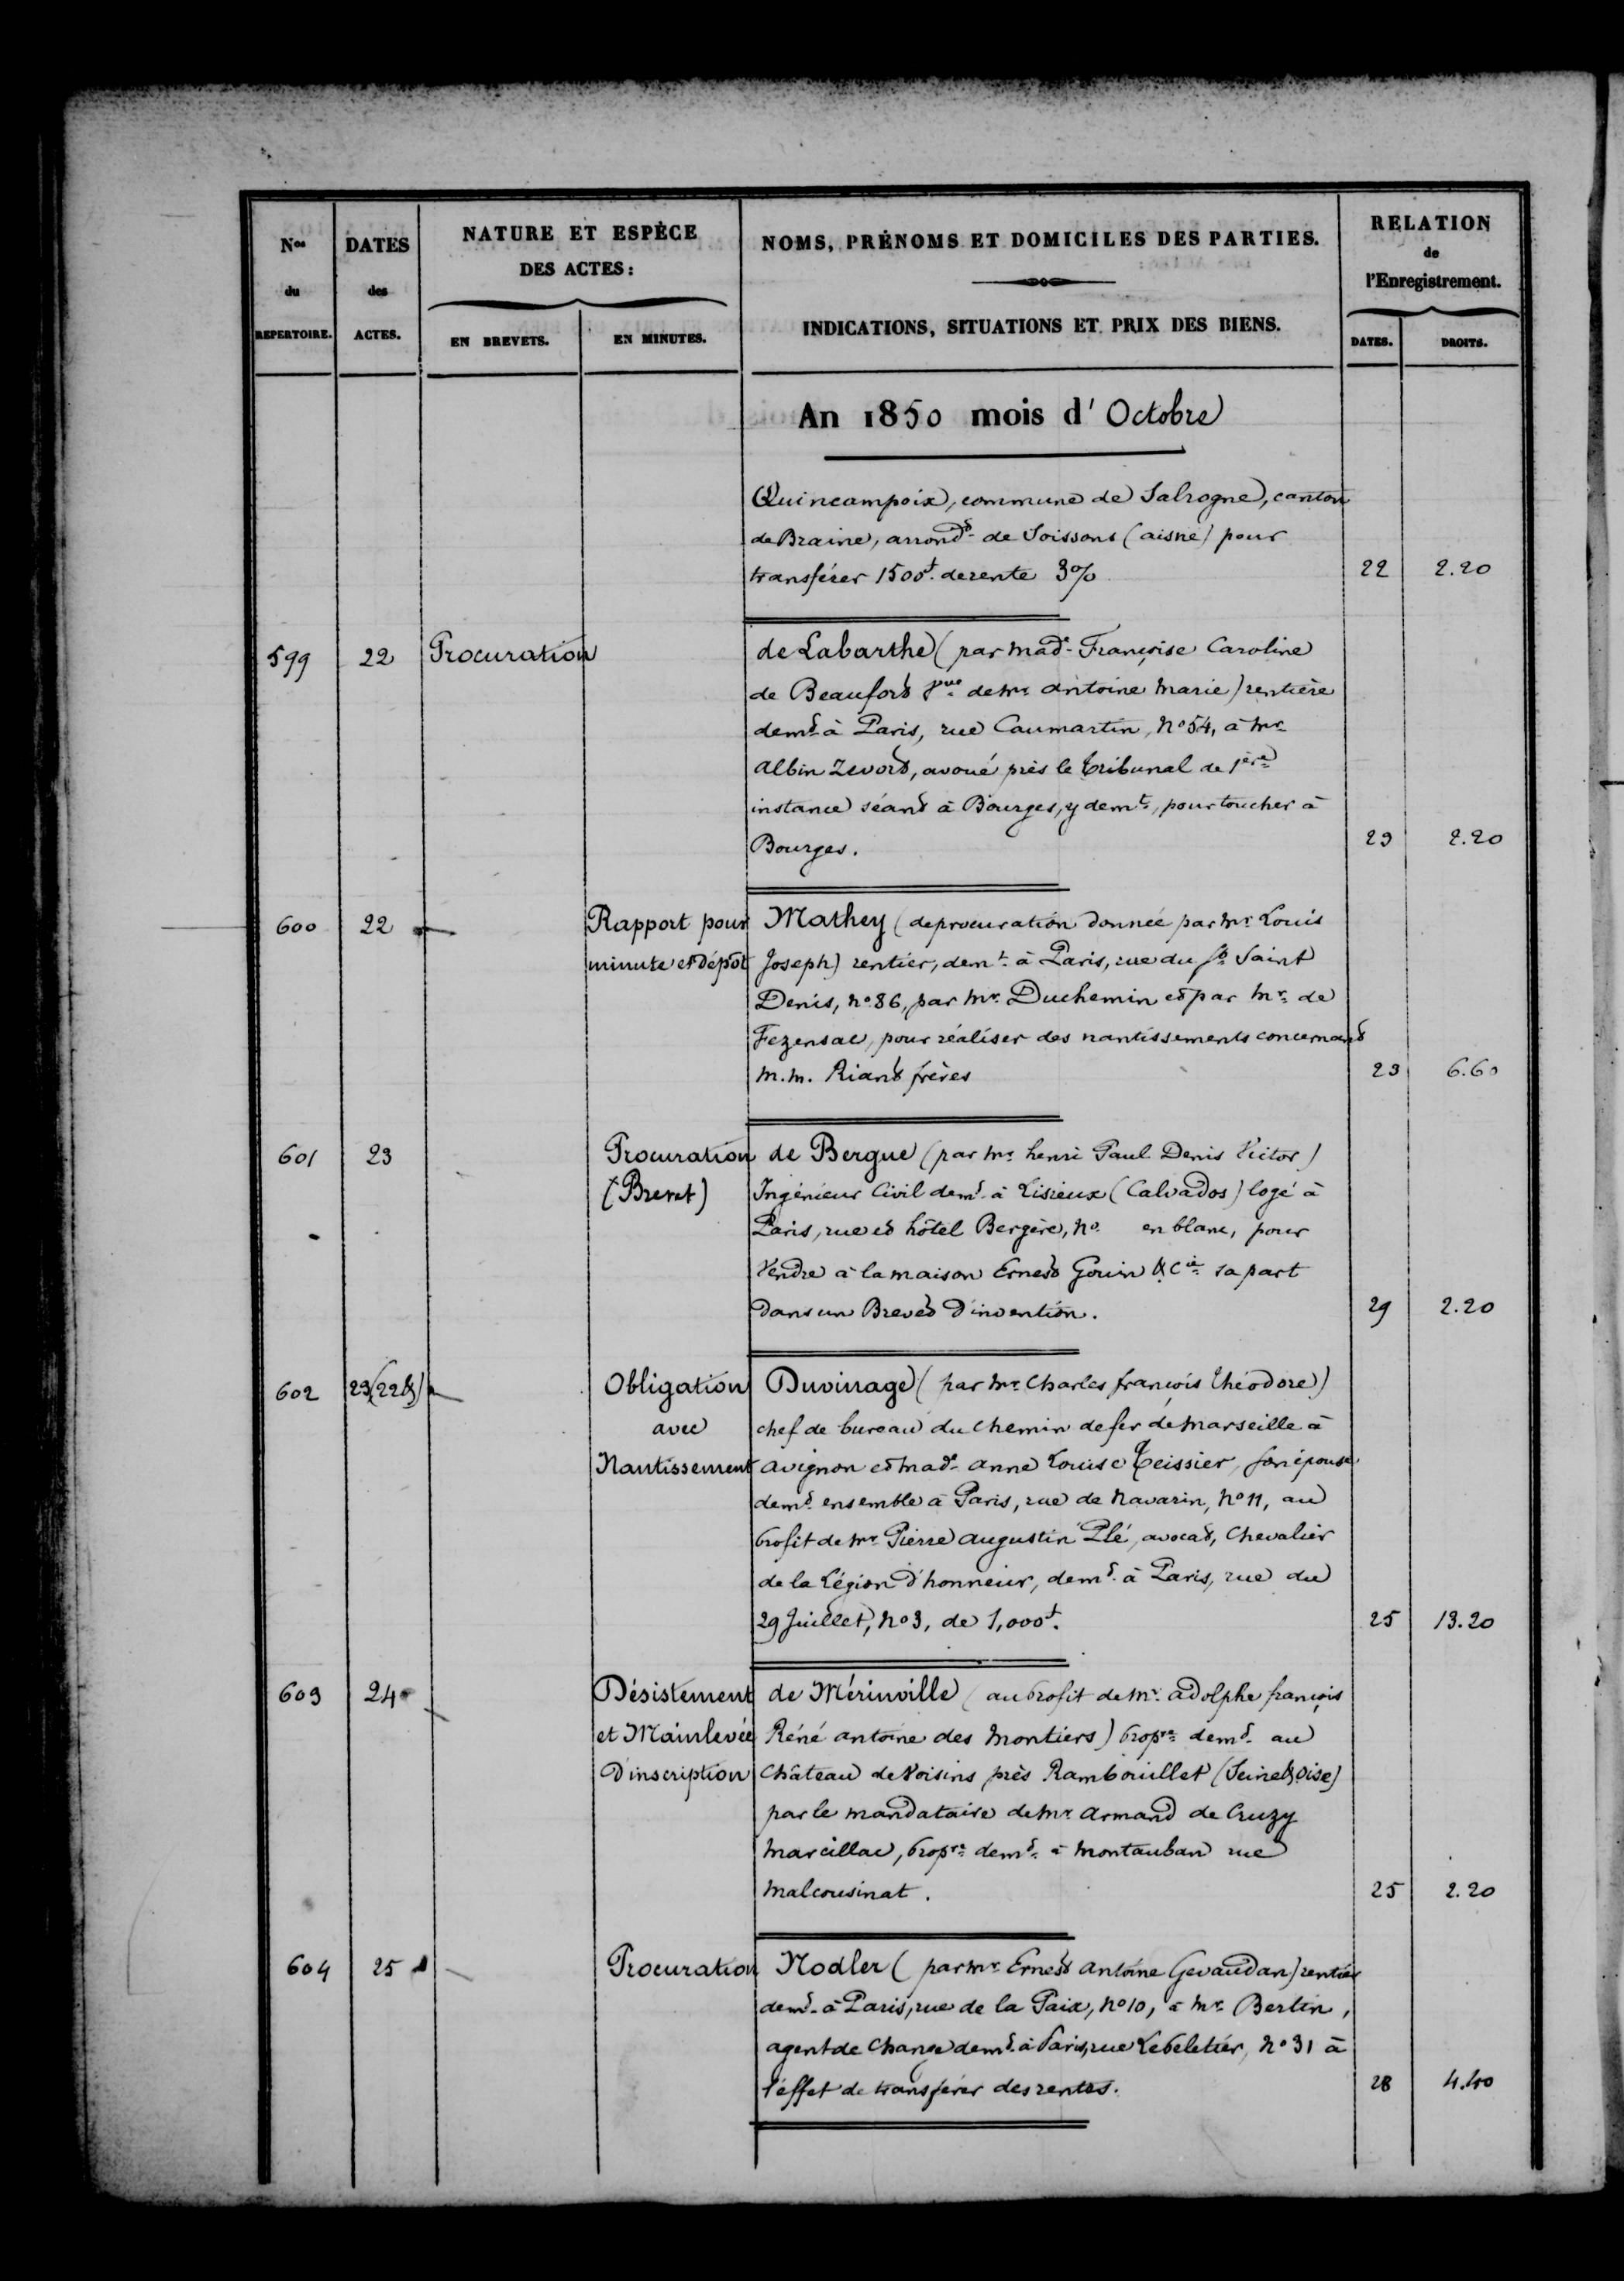 Nos
du
REPERTOIRE.
DATES
des
ACTES.
NATURE ET ESPÈCE
DES ACTES :
EN BREVETS.
EN MINUTES.
NOMS, PRÉNOMS ET DOMICILES DES PARTIES.
INDICATIONS, SITUATIONS ET PRIX DES BIENS.
RELATION
de
l'Enregistrement.
DATES.
DROITS.
An 1850 mois d'Octobre
Quincampoix, commune de Salsogne, canton
de Braine, arrondt de Soissons (aisne) pour
transférer 1500f. de rente 3% 22 2.20
599 22 Procuration de Labarthe (par made Françoise Caroline
de Beaufort Vve de Mr antoine Marie) rentière
demt à Paris, rue Caumartin, No 54, à Mr
Albin Zevort, avoué près le tribunal de 1ère
instance séant à Bourges, y demt, pour toucher à
Bourges. 23 2.20
600 22 Rapport pour Mathey (de procuration donnée par Mr Louis
minute et dépôt Joseph) rentier, demt à Paris, rue du fg Saint
Denis, no 86, par Mr Duchemin et par Mr de
Fezensac, pour réaliser des nantissements concernant
M.M. Riant frères 23 6.60
601 23 Procuration de Bergue (par Mr henri Paul Denis Victor)
(Brevet) Ingénieur Civil demt à Lisieux (Calvados) logé à
Paris, rue et hôtel Bergère, No en blanc, pour
Vendre à la maison Ernest Gouin & Cie sa part
dans un Brevet d'invention. 29 2.20
602 23 (22 &) Obligation Duvinage (par Mr Charles françois théodore)
avec chef de bureau du Chemin de fer de Marseille à
Nantissement avignon et made anne Louise Teissier, son épouse
demt ensemble à Paris, rue de Navarin, No 11, au
profit de Mr Pierre augustin Plé, avocat, Chevalier
de la Légion d'honneur, demt à Paris, rue du
29 Juillet, No 3, de 1,000f. 25 13.20
603 24 Désistement de Mérinville (au profit de Mr adolphe françois
et Mainlevée Réné antoine des Montiers) propre demt au
D'inscription Château de Voisins près Rambouillet (Seine & Oise)
par le mandataire de Mr Armand de Cruzy
Marcillac, propre demt à Montauban rue
Malcousinat. 25 2.20
604 25 Procuration Nodler (par Mr Ernest Antoine Gevaudan) rentier
demt à Paris, rue de la Paix, No 10, à Mr Bertin,
agent de Change demt à Paris, rue Lepeletier, No 31 à
l'effet de transférer des rentes. 28 4.40